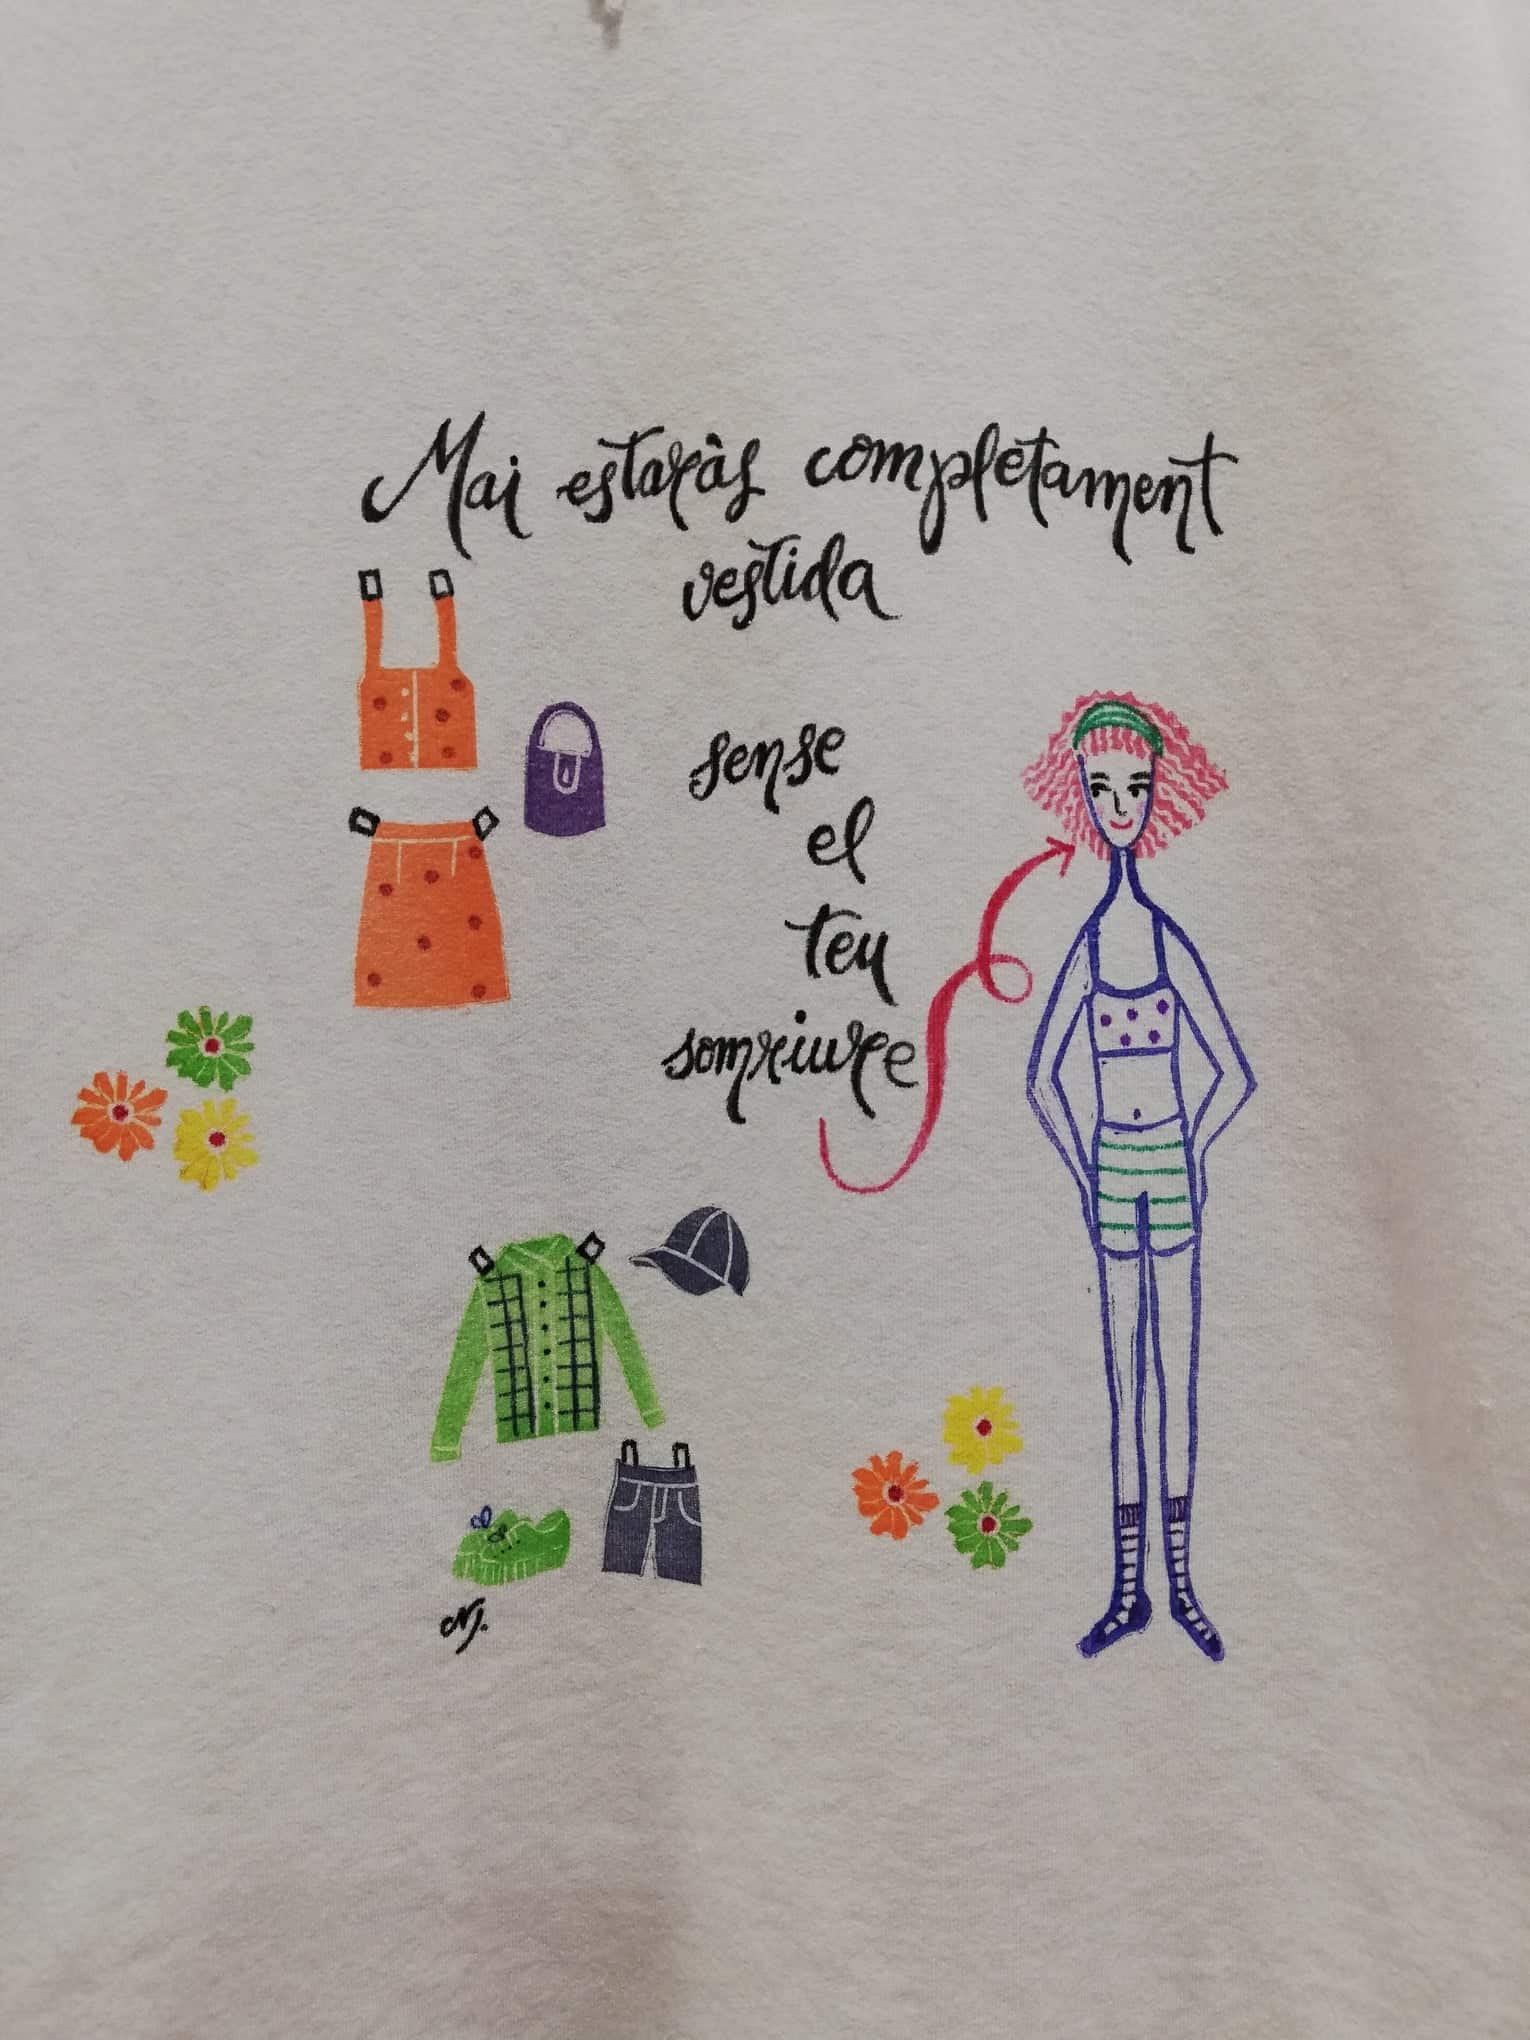 Mai estaràs completament
vestida
sense
el
teu
somriure